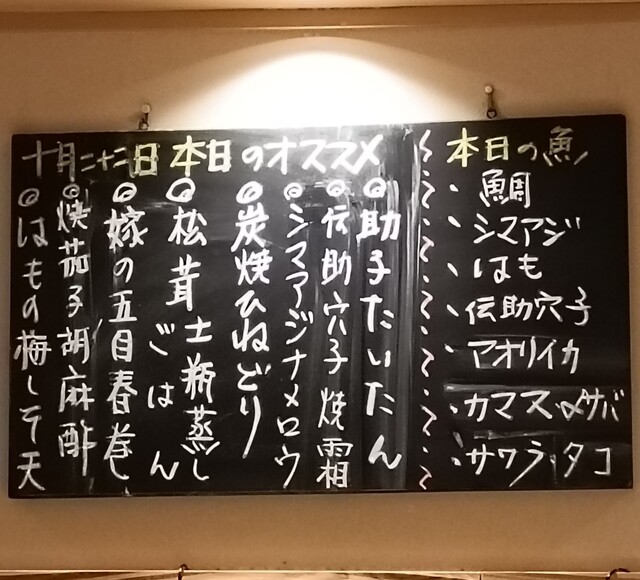 十月二十二日 本日のオススメ
◎助子たいたん
◎伝助穴子焼霜
◎シマアジナメロウ
◎炭焼ひねどり
◎松茸土瓶蒸し
ごはん
◎嫁の五目春巻し
◎焼茄子胡麻酢
◎はもの梅しそ天
本日の魚
鯛
シマアジ
はも
伝助穴子
アオリイカ
カマス・〆サバ
サワラ・タコ